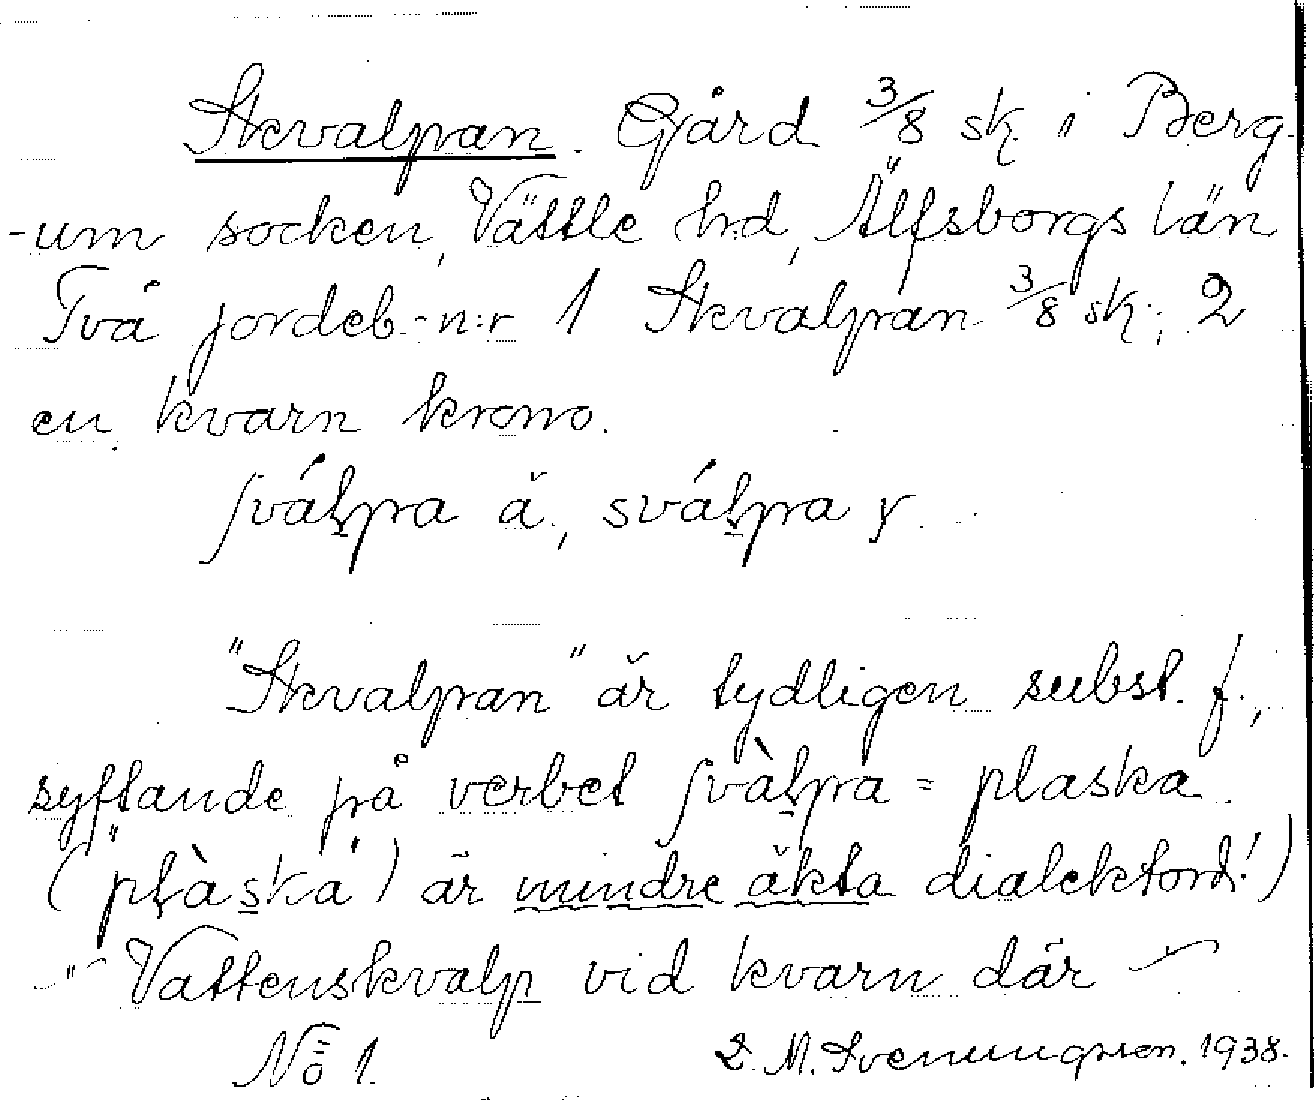 Skvalpan. Gård 3/8 sk. i Berg-
-um socken, Vättle hd, Älfsborgs län
Två jordeb.-n:r 1 Skvalpan 3/8 sk.; 2
en kvarn krono.
ʃválpa ä., sválpa y.
"Skvalpan" är tydligen subst. f.,
syftande på verbet ʃvàlpa = plaska.
("plàska") är mindre äkta dialektord!)
-"- Vattenskvalp vid kvarn där
No 1. M. Svenungsson. 1938.